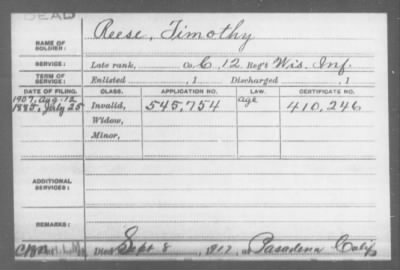 DEAD
NAME OF SOLDIER: Reese, Timothy
SERVICE: Late rank, Co. C, 12 Reg't Wis. Inf.
TERM OF SERVICE: Enlisted , 1 Discharged , 1
DATE OF FILING. CLASS. APPLICATION NO. LAW. CERTIFICATE NO.
1907, Aug. 12 Age
1885, July 25 Invalid, 545,754 410,246
Widow,
Minor,
ADDITIONAL SERVICES:
REMARKS:
Died Sept 8, 1917, at Pasadena Calif